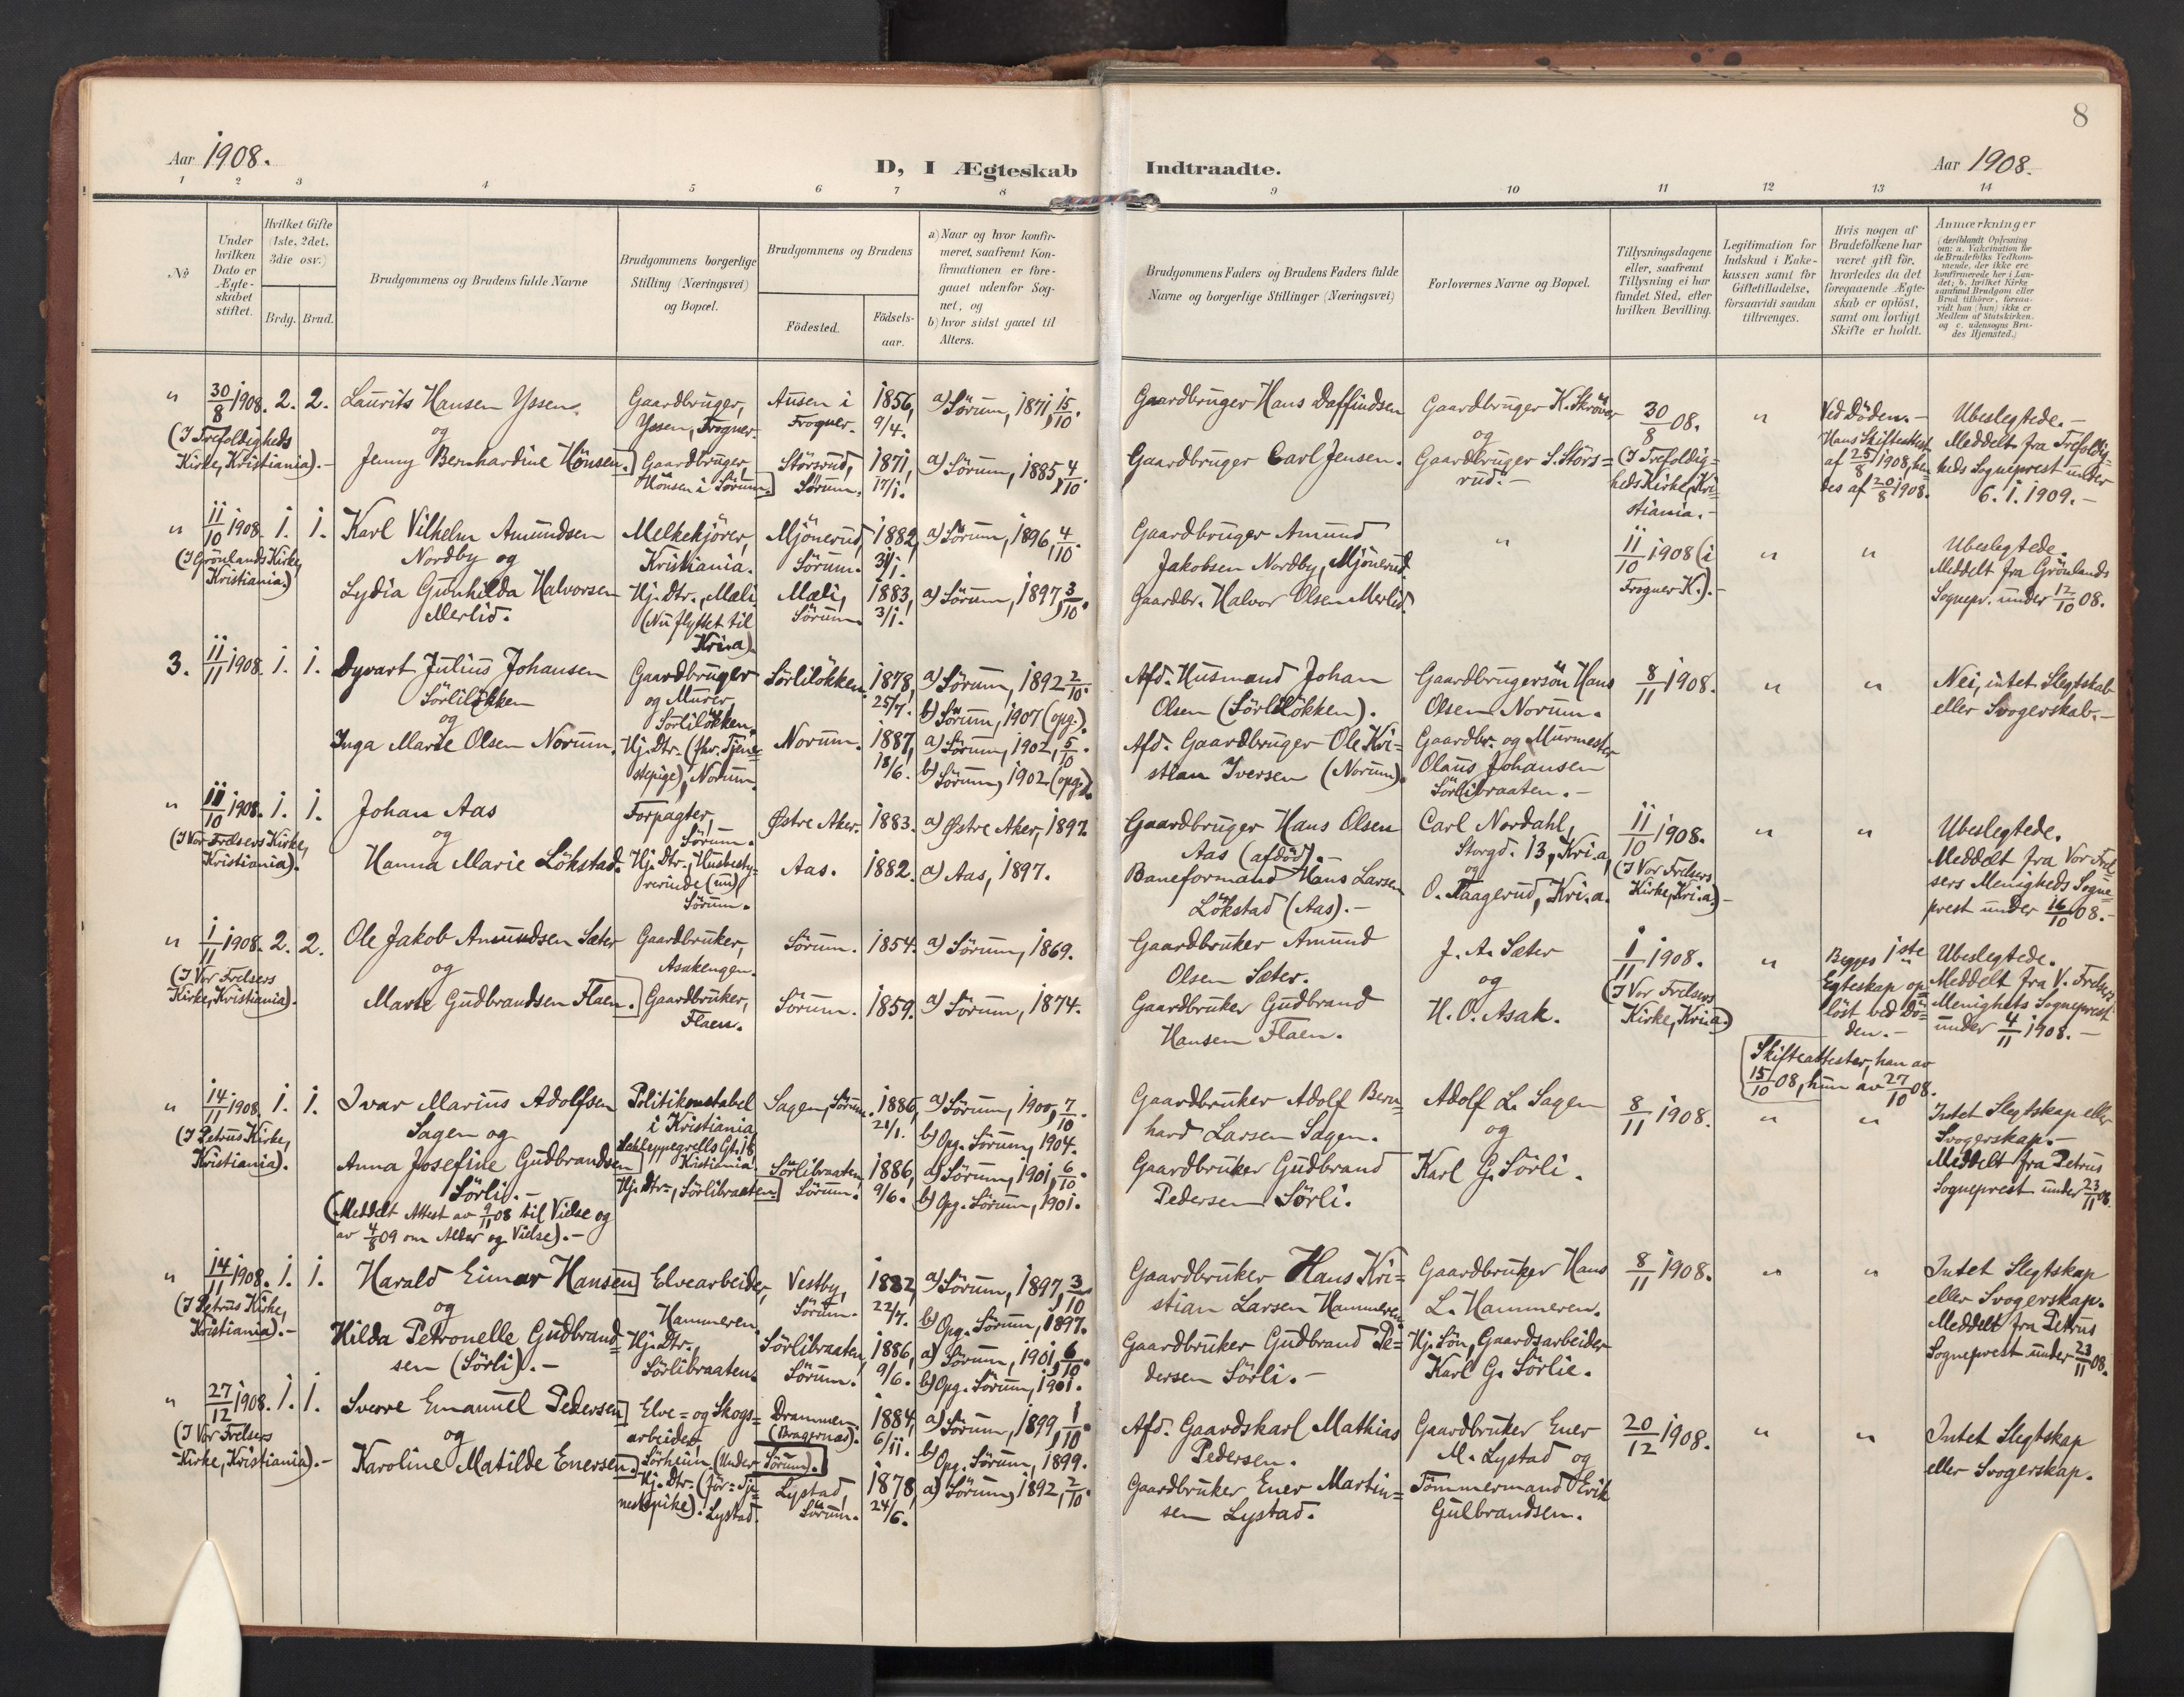 8
Aar 1908.
D, I Ægteskab Indtraadte.
Aar 1908.
1 2 3 4 5 6 7 8 9 10 11 12 13 14
№
Under hvilken Dato er Ægteskabet stiftet.
Hvilket Gifte (1ste, 2det, 3die osv.)
Brdg. Brud.
Brudgommens og Brudens fulde Navne
Brudgommens borgerlige Stilling (Næringsvei) og Bopæl.
Brudgommens og Brudens
Födested.
Födselsaar.
a) Naar og hvor konfirmeret, saafremt Konfirmationen er foregaaet udenfor Sognet, og
b) hvor sidst gaael til Alters.
Brudgommens Faders og Brudens Faders fulde Navne og borgerlige Stillinger (Næringsvei)
Forlovernes Navne og Bopæl.
Tillysningsdagene eller, saafremt Tillysning ei har fundet Sted, efter hvilken Bevilling.
Legitimation for Indskud i Enkekassen samt for Giftetilladelse, forsaavidt saadan tiltrænges.
Hvis nogen af Brudefolkene har været gift för, hvorledes da det foregaaende Ægteskab er oplöst, samt om lovligt Skifte er holdt.
Anmærkninger
(deriblandt Oplysning om: a. Vakcination for de Brudefolks Vedkommende, der ikke ere konfirmerede her i Landet; b. hvilket Kirkesamfund Brudgom eller Brud tilhörer, forsaavidt han (hun) ikke er Medlem af Statskirken, og c. udensogns Brudes Hjemsted.)
" 30/8 1908. 2. 2. Laurits Hansen Yssen
(I Trefoldigheds Kirke, Kristiania).-
og
Jenny Bernhardine Hönsen.
Gaardbruger, Yssen, Frogner.
Gaardbruger, Hönsen i Sörum.
Ausen i Frogner.
Störsrud, Sörum.
1856, 9/4.
1871, 17/1.
a) Sörum, 1871, 15/10.
a) Sörum, 1885, 4/10.
Gaardbruger Hans Daffindsen
Gaardbruger Carl Jensen.
Gaardbruger K. Skröver
og
Gaardbruger S. Störsrud.-
30/8 08.
(I Trefoldigheds Kirke, Kristiania.-
"
Ved Döden.-
Hans Skifteattest af 25/8 1908, hendes af 20/8 1908.
Ubeslegtede.-
Meddelt fra Trefoldigheds Sogneprest under 6.1.1909.-
" 11/10 1908. 1. 1. Karl Vilhelm Amundsen Nordby og
(I Grönlands Kirke, Kristiania.)
Lydia Gunhilda Halvorsen Merlid.
Melkekjörer, Kristiania.
Hj. Dtr., Mæli (Nu flyttet til Kria).
Mjönerud, Sörum.
Mæli, Sörum.
1882, 31/1.
1883, 3/1.
a) Sörum, 1896, 4/10
a) Sörum, 1897, 3/10.
Gaardbruger Amund Jakobsen Nordby, Mjönerud.
Gaardbr. Halvor Olsen Merlid.
"
11/10 1908 (i Frogner K.).-
" "
Ubeslegtede.
Meddelt fra Grönlands Sognepr. under 12/10 08.
3. 11/11 1908. 1. 1. Dyvart Julius Johansen Sörlilökken
og
Inga Marie Olsen Norum.
Gaardbruger og Murer, Sörlilökken.
Hj. Dtr. (fhv. Tjenestepige), Norum.
Sörlilökken.
Norum.
1878, 25/7.
1887, 18/6.
a) Sörum, 1892 2/10.
b) Sörum, 1907 (opg.).
a) Sörum, 1902, 5/10.
b) Sörum, 1902 (opg.).
Afd. Husmand Johan Olsen (Sörlilökken).
Afd. Gaardbruger Ole Kristian Iversen (Norum).
Gaardbrugersön Hans Olsen Norum.
Gaardbr. og Murmester Olaus Johansen Sörlibraaten.-
8/11 1908.
" "
Nei, intet Slegtskab eller Svogerskab.-
" 11/10 1908. 1. 1. Johan Aas
(I Vor Frelsers Kirke, Kristiania).
og
Hanna Marie Lökstad.
Forpagter, Sörum.
Hj. Dtr., Husbestyrerinde (nu) Sörum.
Østre Aker.
Aas.
1883.
1882.
a) Østre Aker, 1897
a) Aas, 1897.
Gaardbruger Hans Olsen Aas (afdöd).-
Baneformand Hans Larsen Lökstad (Aas).-
Carl Nordahl, Storgd. 13, Kri.a,
og
O. Taagerud, Kri.a.
11/10 1908.
(I Vor Frelsers Kirke, Kri.a.)-
" "
Ubeslegtede.
Meddelt fra Vor Frelsers Menigheds Sogneprest under 16/10 08.-
" 1/11 1908. 2. 2. Ole Jakob Amundsen Sæter
(I Vor Frelsers Kirke, Kristiania).
og
Marte Gudbrandsen Flaen.
Gaardbruker, Asakengen.
Gaardbruker, Flaen.
Sörum.
Sörum.
1854.
1859.
a) Sörum, 1869.
a) Sörum, 1874.
Gaardbruker Amund Olsen Sæter.
Gaardbruker Gudbrand Hansen Flaen.
J. A. Sæter
og
H. O. Asak.
1/11 1908.
(I Vor Frelsers Kirke, Kria.)
"
Begges 1ste Egteskap oplöst ved Döden.-
Skifteattester, han av 15/10 08, hun av 27/10 08.
Ubeslegtede.
Meddelt fra V. Frelsers Menighets Sogneprest under 4/11 1908.-
" 14/11 1908. 1. 1. Ivar Marius Adolfsen Sagen og
(I Petrus Kirke, Kristiania).
Anna Josefine Gudbrandsen Sörli.-
(Meddelt Attest av 9/11 08 til Vielse og av 4/8 09 om Alder og Vielse).-
Politikonstabel i Kristiania, Schleppegrells Gt. 18 Kristiania.
Hj. Dtr., Sörlibraaten.
Sagen, Sörum.
Sörlibraaten, Sörum.
1886, 21/1.
1886, 9/6.
a) Sörum, 1900, 7/10
b) Opg. Sörum, 1904.
a) Sörum, 1901, 6/10
b) Opg. Sörum, 1901.
Gaardbruker Adolf Bernhard Larsen Sagen.
Gaardbruker Gudbrand Pedersen Sörli.
Adolf L. Sagen
og
Karl G. Sörli.
8/11 1908.
" "
Intet Slegtskap eller Svogerskap.-
Meddelt fra Petrus Sogneprest under 23/11 08.
" 14/11 1908. 1. 1. Harald Eimar Hansen
(I Petrus Kirke, Kristiania).-
og
Hilda Petronelle Gudbrandsen (Sörli).-
Elvearbeider, Hammeren.
Hj. Dtr., Sörlibraaten.
Vestby, Sörum.
Sörlibraaten, Sörum.
1882, 22/7.
1886, 9/6.
a) Sörum, 1897, 3/10
b) Opg. Sörum, 1897.
a) Sörum, 1901, 6/10.
b) Opg. Sörum, 1901.
Gaardbruker Hans Kristian Larsen Hammeren
Gaardbruker Gudbrand Pedersen Sörli.-
Gaardbruker Hans L. Hammeren.
Hj. Sön, Gaardsarbeider Karl G. Sörlie.
8/11 1908.
" "
Intet Slegtskap eller Svogerskap.
Meddelt fra Petrus Sogneprest under 23/11 08.
" 27/12 1908. 1. 1. Sverre Emanuel Pedersen
(I Vor Frelsers Kirke, Kristiania).-
og
Karoline Matilde Enersen
Elve- og Skogsarbeider, Sörheim (Under Sörum).
Hj. Dtr. (för: Tjenestepike). Lystad.
Drammen. (Bragernæs).
Lystad, Sörum.
1884, 6/11.
1878, 24/6.
a) Sörum, 1899, 1/10
b) Opg. Sörum, 1899.
a) Sörum, 1892, 2/10.
Afd. Gaardskarl Mathias Pedersen.
Gaardbruker Ener Martinsen Lystad.
Gaardbruker Ener M. Lystad og
Tömmermand Erik Gulbrandsen.
20/12 1908.
" "
Intet Slegtskap eller Svogerskap.